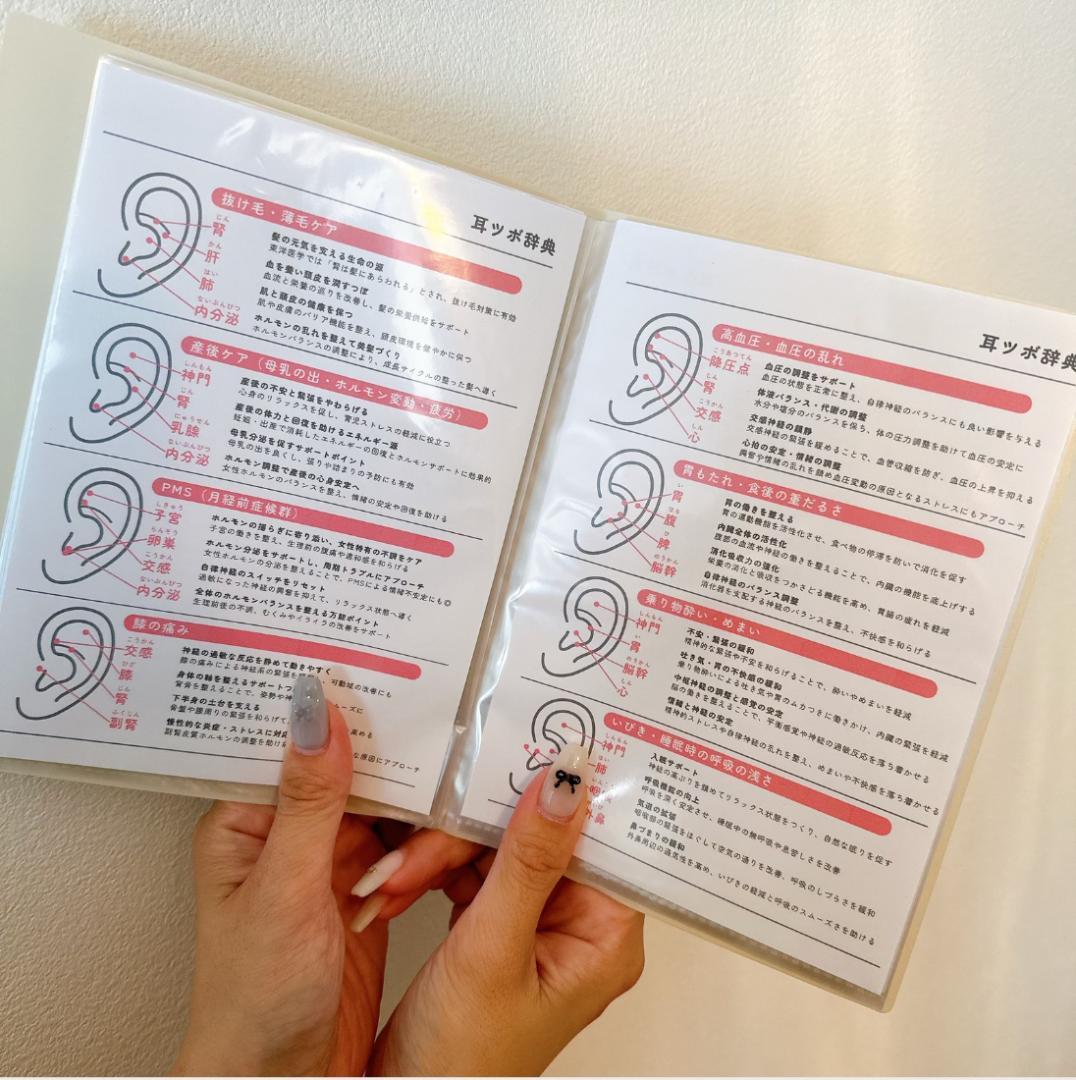 耳ツボ辞典
抜け毛・薄毛ケア
じん
腎
かん
肝
はい
肺
ないぶんぴつ
内分泌
髪の元気を支える生命の源
東洋医学では「腎は髪にあらわれる」とされ、抜け毛対策に有効
血を養い頭皮を潤すつぼ
血流と栄養の巡りを改善し、髪の栄養供給をサポート
肌と頭皮の健康を保つ
肌や皮膚のバリア機能を整え、頭皮環境を健やかに保つ
ホルモンの乱れを整えて美髪づくり
ホルモンバランスの調整により、成長サイクルの整った髪へ導く
産後ケア（母乳の出・ホルモン変動・疲労）
しんもん
神門
じん
腎
にゅうせん
乳腺
ないぶんぴつ
内分泌
産後の不安と緊張をやわらげる
心身のリラックスを促し、育児ストレスの軽減に役立つ
産後の体力と回復を助けるエネルギー源
妊娠・出産で消耗したエネルギーの回復とホルモンサポートに効果的
母乳分泌を促すサポートポイント
母乳の出を良くし、張りや詰まりの予防にも有効
ホルモン調整で産後の心身安定へ
女性ホルモンのバランスを整え、情緒の安定や回復を助ける
PMS（月経前症候群）
しきゅう
子宮
らんそう
卵巣
こうかん
交感
ないぶんぴつ
内分泌
ホルモンの揺らぎに寄り添い、女性特有の不調をケア
子宮の働きを整え、生理前の腹痛や違和感を和らげる
ホルモン分泌をサポートし、周期トラブルにアプローチ
女性ホルモンの分泌を整えることで、PMSによる情緒不安定にも◎
自律神経のスイッチをリセット
過敏になった神経の興奮を抑えて、リラックス状態へ導く
全体のホルモンバランスを整える万能ポイント
生理前後の不調、むくみやイライラの改善をサポート
膝の痛み
こうかん
交感
ひざ
膝
じん
腎
ふくじん
副腎
神経の過敏な反応を静めて動きやすく
膝の痛みによる神経系の緊張を 可動域の改善にも
身体の軸を整えるサポートつ
背骨を整えることで、姿勢や神 ーズに
下半身の土台を支える
骨盤や腰周りの緊張を和らげて、 高める
慢性的な炎症・ストレスに対応
副腎皮質ホルモンの調整を助け な原因にアプローチ
耳ツボ辞典
高血圧・血圧の乱れ
こうあつてん
降圧点
じん
腎
こうかん
交感
しん
心
血圧の調整をサポート
血圧の状態を正常に整え、自律神経のバランスにも良い影響を与える
体液バランス・代謝の調整
水分や塩分のバランスを保ち、体の圧力調整を助けて血圧の安定に
交感神経の鎮静
交感神経の緊張を緩めることで、血管収縮を防ぎ、血圧の上昇を抑える
心拍の安定・情緒の調整
興奮や情緒の乱れを鎮め血圧変動の原因となるストレスにもアプローチ
胃もたれ・食後の重だるさ
い
胃
はら
腹
ひ
脾
のうかん
脳幹
胃の働きを整える
胃の運動機能を活性化させ、食べ物の停滞を防いで消化を促す
内臓全体の活性化
腹部の血流や神経の働きを整えることで、内臓の機能を底上げする
消化吸収力の強化
栄養の消化と吸収をつかさどる機能を高め、胃腸の疲れを軽減
自律神経のバランス調整
消化器を支配する神経のバランスを整え、不快感を和らげる
乗り物酔い・めまい
しんもん
神門
い
胃
のうかん
脳幹
しん
心
不安・緊張の緩和
精神的な緊張や不安を和らげることで、酔いやめまいを軽減
吐き気・胃の不快感の緩和
乗り物酔いによる吐き気や胃のムカつきに働きかけ、内臓の緊張を軽減
中枢神経の調整と感覚の安定
脳の働きを整えることで、平衡感覚や神経の過敏反応を落ち着かせる
情緒と神経の安定
精神的ストレスや自律神経の乱れを整え、めまいや不快感を落ち着かせる
いびき・睡眠時の呼吸の浅さ
しんもん
神門
はい
肺
外鼻
入眠サポート
神経の高ぶりを鎮めてリラックス状態をつくり、自然な眠りを促す
呼吸機能の向上
呼吸を深く安定させ、睡眠中の無呼吸や息苦しさを改善
気道の拡張
咽喉部の緊張をほぐして空気の通りを改善、呼吸のしづらさを緩和
鼻づまりの緩和
外鼻周辺の通気性を高め、いびきの軽減と呼吸のスムーズさを助ける